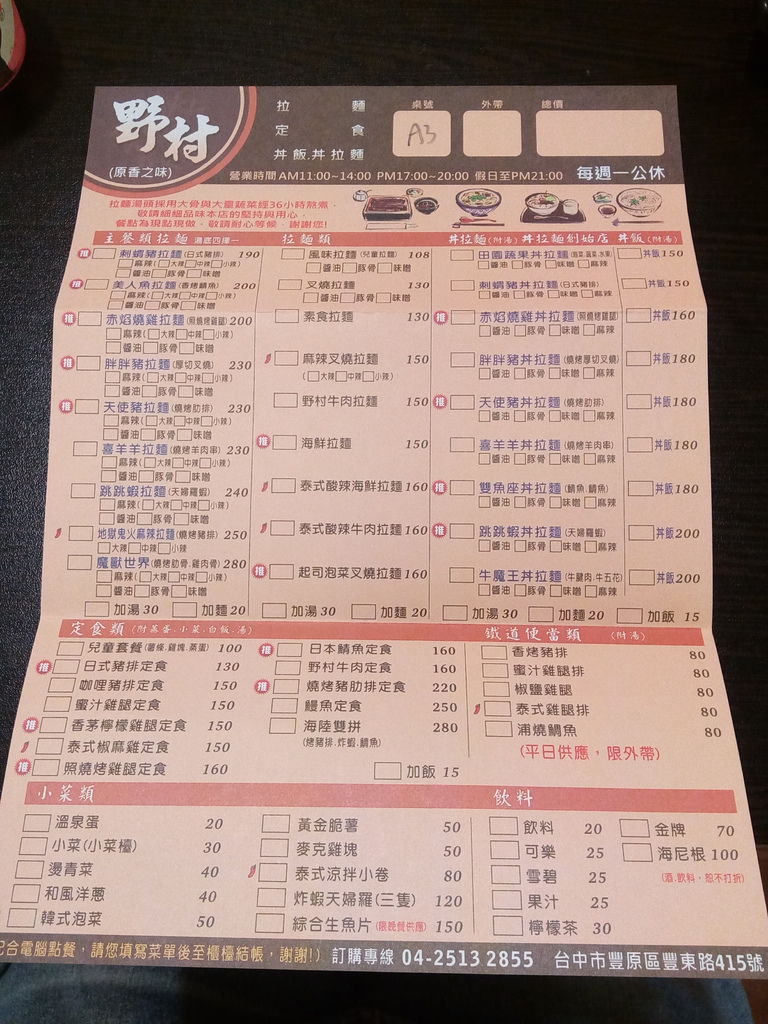 野村
(原香之味)
拉麵
定食
丼飯.丼拉麵
桌號 外帶 總價
A3
營業時間AM11:00~14:00 PM17:00~20:00 假日至PM21:00 每週一公休
拉麵湯頭採用大骨與大量蔬菜經36小時熬煮,
敬請細細品味本店的堅持與用心,
餐點為現點現做,敬請耐心等候,謝謝您!
主餐類拉麵 湯底四擇一
推 刺蝟豬拉麵(日式豬排) 190
麻辣(大辣 中辣 小辣)
醬油 豚骨 味噌
推 美人魚拉麵(香烤鯖魚) 200
麻辣(大辣 中辣 小辣)
醬油 豚骨 味噌
推 赤焰燒雞拉麵(照燒烤雞腿) 200
麻辣(大辣 中辣 小辣)
醬油 豚骨 味噌
推 胖胖豬拉麵(厚切叉燒) 230
麻辣(大辣 中辣 小辣)
醬油 豚骨 味噌
推 天使豬拉麵(燒烤肋排) 230
麻辣(大辣 中辣 小辣)
醬油 豚骨 味噌
喜羊羊拉麵(燒烤羊肉串) 230
麻辣(大辣 中辣 小辣)
醬油 豚骨 味噌
跳跳蝦拉麵(天婦羅蝦) 240
麻辣(大辣 中辣 小辣)
醬油 豚骨 味噌
地獄鬼火麻辣拉麵(燒烤豬排) 250
大辣 中辣 小辣
推 魔獸世界(燒烤肋骨.雞肉骨) 280
麻辣(大辣 中辣 小辣)
醬油 豚骨 味噌
加湯 30 加麵 20
拉麵類
風味拉麵(兒童拉麵) 108
醬油 豚骨 味噌
叉燒拉麵 130
醬油 豚骨 味噌
素食拉麵 130
麻辣叉燒拉麵 150
(大辣 中辣 小辣)
野村牛肉拉麵 150
推 海鮮拉麵 150
泰式酸辣海鮮拉麵 160
泰式酸辣牛肉拉麵 160
推 起司泡菜叉燒拉麵 160
加湯 30 加麵 20
丼拉麵(附湯) 丼拉麵創始店 丼飯(附湯)
田園蔬果丼拉麵 丼飯 150
醬油 豚骨 味噌 麻辣
刺蝟豬丼拉麵(日式豬排) 丼飯 150
醬油 豚骨 味噌 麻辣
推 赤焰燒雞丼拉麵(照燒烤雞腿) 丼飯 160
醬油 豚骨 味噌 麻辣
推 胖胖豬丼拉麵(燒烤厚切叉燒) 丼飯 180
醬油 豚骨 味噌 麻辣
推 天使豬丼拉麵(燒烤肋排) 丼飯 180
醬油 豚骨 味噌 麻辣
喜羊羊丼拉麵(燒烤羊肉串) 丼飯 180
醬油 豚骨 味噌 麻辣
推 雙魚座丼拉麵(鯖魚.鯛魚) 丼飯 180
醬油 豚骨 味噌 麻辣
推 跳跳蝦丼拉麵(天婦羅蝦) 丼飯 200
醬油 豚骨 味噌 麻辣
牛魔王丼拉麵(牛腱肉.牛五花) 丼飯 200
醬油 豚骨 味噌 麻辣
加湯 30 加麵 20 加飯 15
定食類 (附蒸蛋.小菜.白飯.湯)
兒童套餐(薯條.雞塊.蒸蛋) 100
推 日式豬排定食 130
咖哩豬排定食 150
蜜汁雞腿定食 150
推 香茅檸檬雞腿定食 150
泰式椒麻雞定食 150
推 照燒烤雞腿定食 160
推 日本鯖魚定食 160
野村牛肉定食 160
推 燒烤豬肋排定食 220
鰻魚定食 250
海陸雙拼 280
(烤豬排.炸蝦.鯛魚)
加飯 15
鐵道便當類 (附湯)
香烤豬排 80
蜜汁雞腿排 80
椒鹽雞腿 80
泰式雞腿排 80
浦燒鯛魚 80
(平日供應,限外帶)
小菜類
溫泉蛋 20
小菜(小菜檯) 30
燙青菜 40
和風洋蔥 40
韓式泡菜 50
黃金脆薯 50
麥克雞塊 50
泰式涼拌小卷 80
炸蝦天婦羅(三隻) 120
綜合生魚片(限晚餐供應) 150
飲料
飲料 20
可樂 25
雪碧 25
果汁 25
檸檬茶 30
金牌 70
海尼根 100
(酒.飲料,恕不打折)
合電腦點餐,請您填寫菜單後至櫃檯結帳,謝謝!) 訂購專線 04-2513 2855 台中市豐原區豐東路415號